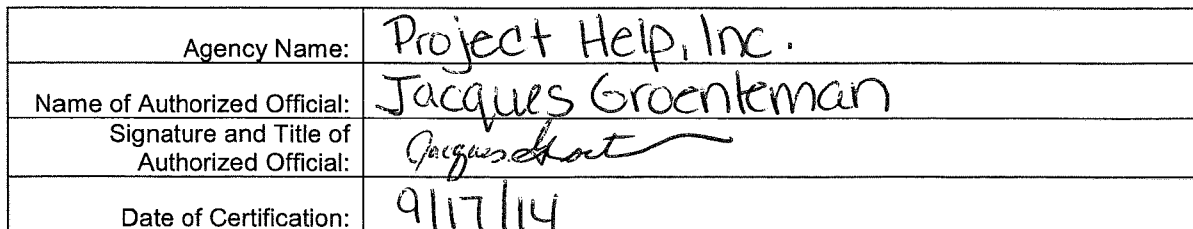 Agency Name: Project Help, Inc.
Name of Authorized Official: Jacques Groenteman
Signature and Title of
Authorized Official: Jacques
Date of Certification: 9/17/14